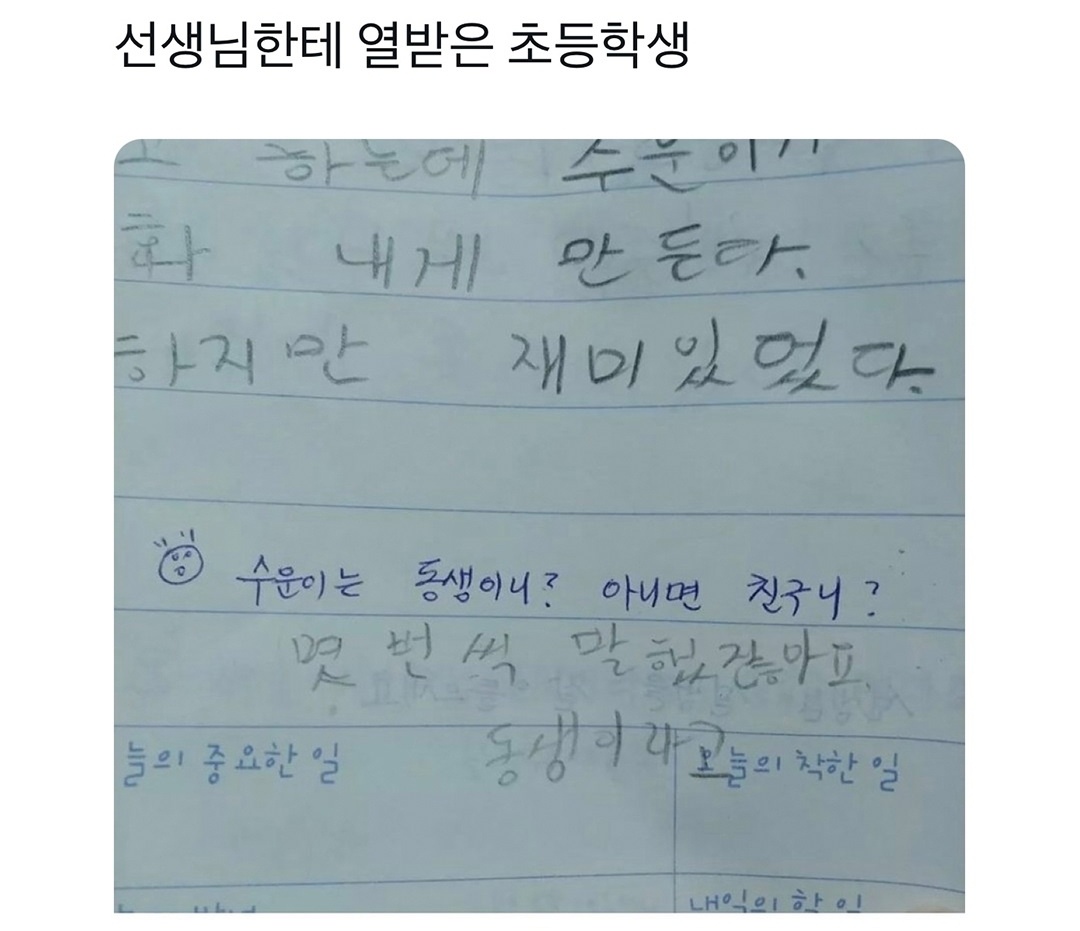 선생님한테 열받은 초등학생
하는데 수운이가
화 내게 만든다.
하지만 재미있었다.
수운이는 동생이니? 아니면 친구니?
몇 번씩 말했잖아요.
동생이라고
늘의 중요한 일 오늘의 착한 일
내일의 할 일